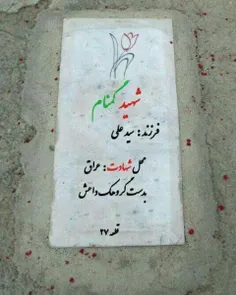 شهید گمنام
فرزند : سید علی
محل شهادت : عراق
بدست گروهک داعش
قطعه ۲۷